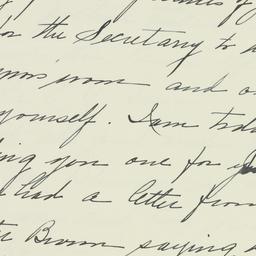 for the Secretary to
room and
yourself. I am
ing you one for
had a letter from
Brown saying